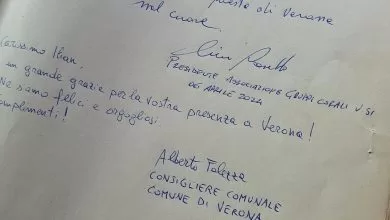 di Verona
nel cuore.
PRESIDENTE ASSOCIAZIONE GRUPPI CORALI V SI
06 APRILE 2024
Carissimo
un grande grazie per la vostra presenza a Verona!
Ne siamo felici e orgogliosi.
complimenti!
Alberto
CONSIGLIERE COMUNALE
COMUNE DI VERONA